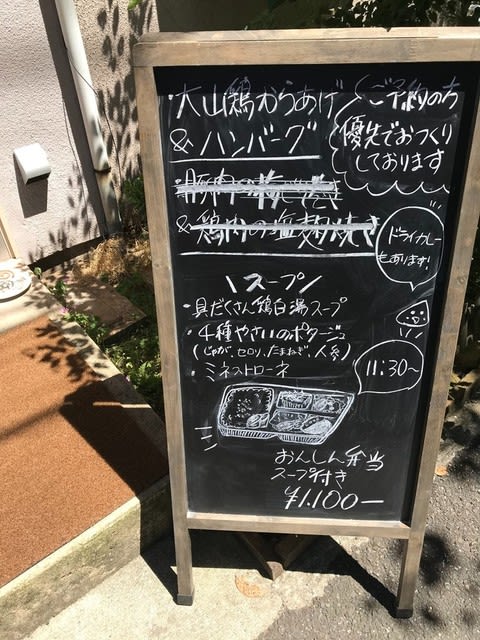 ・大山鶏からあげ
& ハンバーグ
ご予約の方
優先でおつくり
しております
豚肉の梅しそ巻き
& 鶏肉の塩麹焼き
ドライカレー
もあります!
\スープ/
・具だくさん鶏白湯スープ
・4種やさいのポタージュ
(じゃが、セロリ、たまねぎ、人参)
・ミネストローネ
11:30〜
おんしん弁当
スープ付き
¥1,100−